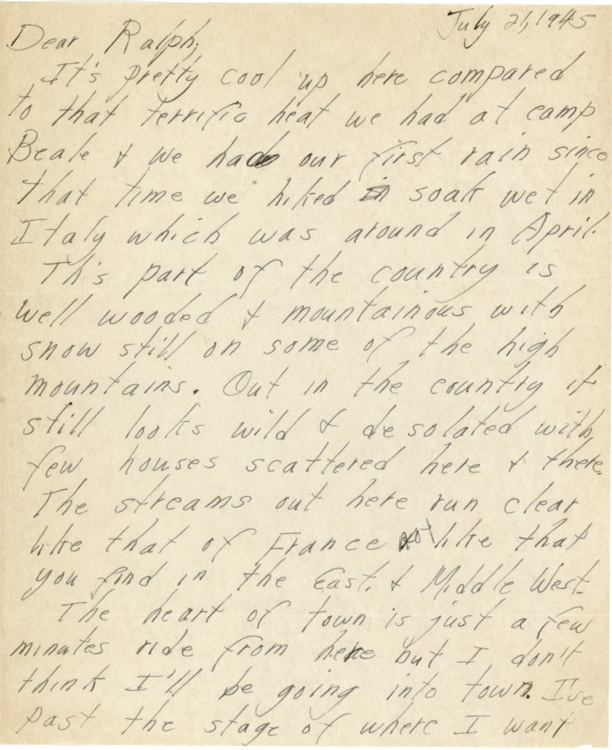 July 21, 1945
Dear Ralph,
It's pretty cool up here compared
to that terrific heat we had at camp
Beale & we had our first rain since
that time we hiked in soak wet in
Italy which was around in April.
This part of the country is
well wooded & mountainous with
snow still on some of the high
mountains. Out in the country it
still looks wild & desolated with
few houses scattered here & there.
The streams out here run clear
like that of France not like that
you find in the East. & Middle West.
The heart of town is just a few
minutes ride from here but I don't
think I'll be going into town. I've
past the stage of where I want